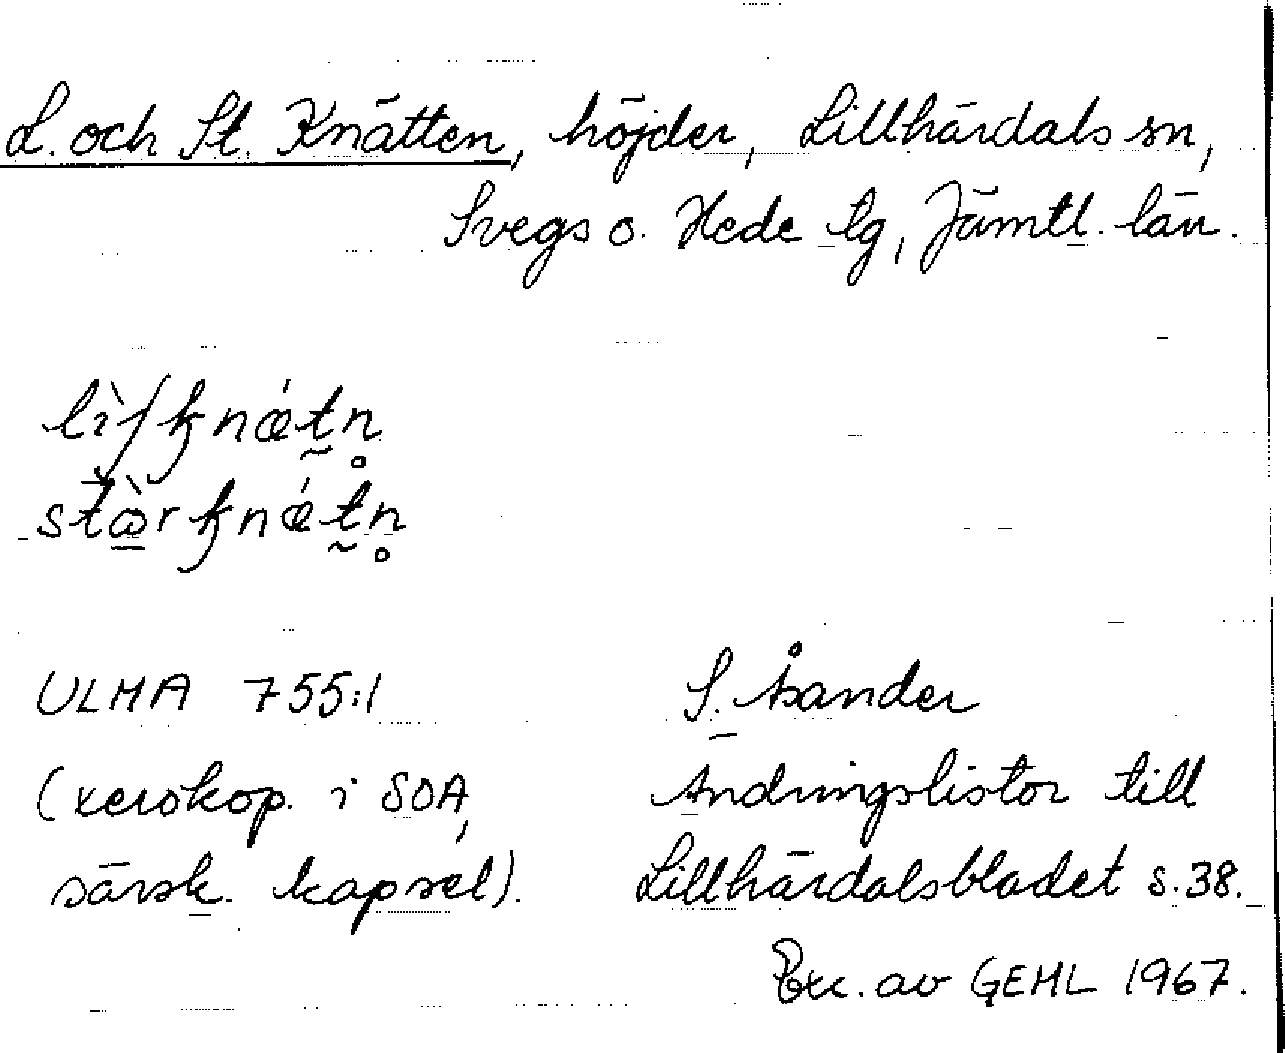 L. och St. Knätten, höjder, Lillhärdals sn,
Svegs o. Hede tg, Jämtl. län.
lìſꞣnǽt̰n̥
stæ̠̀rꞣnǽt̰n̥
ULMA 755:1
S. Åsander
(xerokop. i SOA,
särsk. kapsel).
Ändringslistor till
Lillhärdalsbladet s. 38.
Exc. av GEHL 1967.